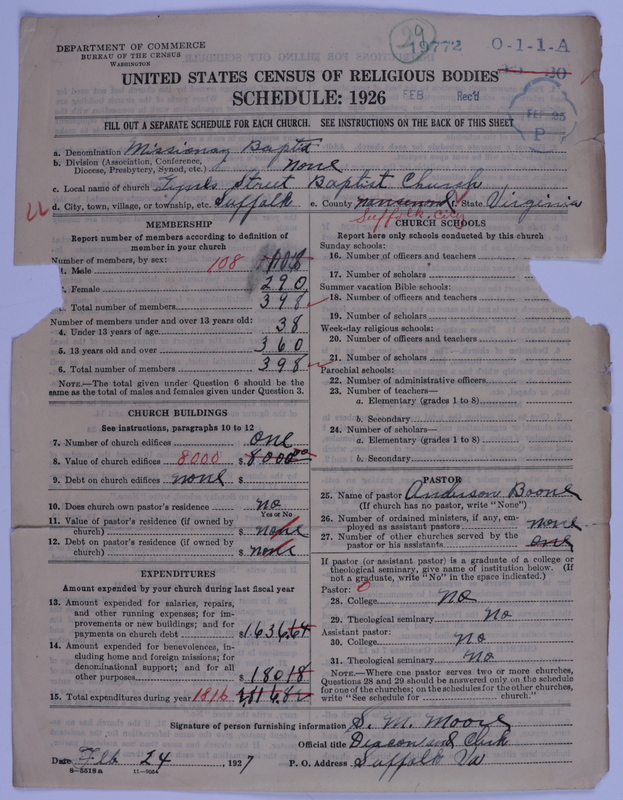 29
19772
O-1-1-A
DEPARTMENT OF COMMERCE
BUREAU OF THE CENSUS
WASHINGTON
UNITED STATES CENSUS OF RELIGIOUS BODIES
SCHEDULE: 1926
FEB Rec'd
FEB 25
P
FILL OUT A SEPARATE SCHEDULE FOR EACH CHURCH. SEE INSTRUCTIONS ON THE BACK OF THIS SHEET
a. Denomination Missionary Baptst
b. Division (Association, Conference, Diocese, Presbytery, Synod, etc.) none
c. Local name of church Tynes Street Baptist Church
d. City, town, village, or township, etc. Suffolk e. County nansemond f. State Virginia
Suffolk City
MEMBERSHIP
Report number of members according to definition of
member in your church
Number of members by sex:
1. Male 108 108
2. Female 290
3. Total number of members 398
Number of members under and over 13 years old:
4. Under 13 years of age 38
5. 13 years old and over 360
6. Total number of members 398
NOTE.—The total given under Question 6 should be the
same as the total of males and females given under Question 3.
CHURCH BUILDINGS
See instructions, paragraphs 10 to 12
7. Number of church edifices one
8. Value of church edifices 8000 $8000.00
9. Debt on church edifices none $
10. Does church own pastor's residence no
Yes or No
11. Value of pastor's residence (if owned by
church) $ none
12. Debt on pastor's residence (if owned by
church) $ none
EXPENDITURES
Amount expended by your church during last fiscal year
13. Amount expended for salaries, repairs,
and other running expenses; for im-
provements or new buildings; and for
payments on church debt $1636.64
14. Amount expended for benevolences, in-
cluding home and foreign missions; for
denominational support; and for all
other purposes $180.18
15. Total expenditures during year 1816
CHURCH SCHOOLS
Report here only schools conducted by this church
Sunday schools:
16. Number of officers and teachers
17. Number of scholars
Summer vacation Bible schools:
18. Number of officers and teachers
19. Number of scholars
Week-day religious schools:
20. Number of officers and teachers
21. Number of scholars
Parochial schools:
22. Number of administrative officers
23. Number of teachers—
a. Elementary (grades 1 to 8)
b. Secondary
24. Number of scholars—
a. Elementary (grades 1 to 8)
b. Secondary
PASTOR
25. Name of pastor Anderson Boone
(If church has no pastor, write "None")
26. Number of ordained ministers, if any, em-
ployed as assistant pastors none
27. Number of other churches served by the
pastor or his assistants one
If pastor (or assistant pastor) is a graduate of a college or
theological seminary, give name of institution below. (If
not a graduate, write "No" in the space indicated.)
Pastor: 0
28. College No
29. Theological seminary No
Assistant pastor:
30. College No
31. Theological seminary No
NOTE.—Where one pastor serves two or more churches,
Questions 28 and 29 should be answered only on the schedule
for one of the churches; on the schedules for the other churches,
write "See schedule for church."
Signature of person furnishing information S. M. Moore
Official title Deacon and Clerk
Date Feb 24, 1927 P. O. Address Suffolk Va
8—5518a 11—9034